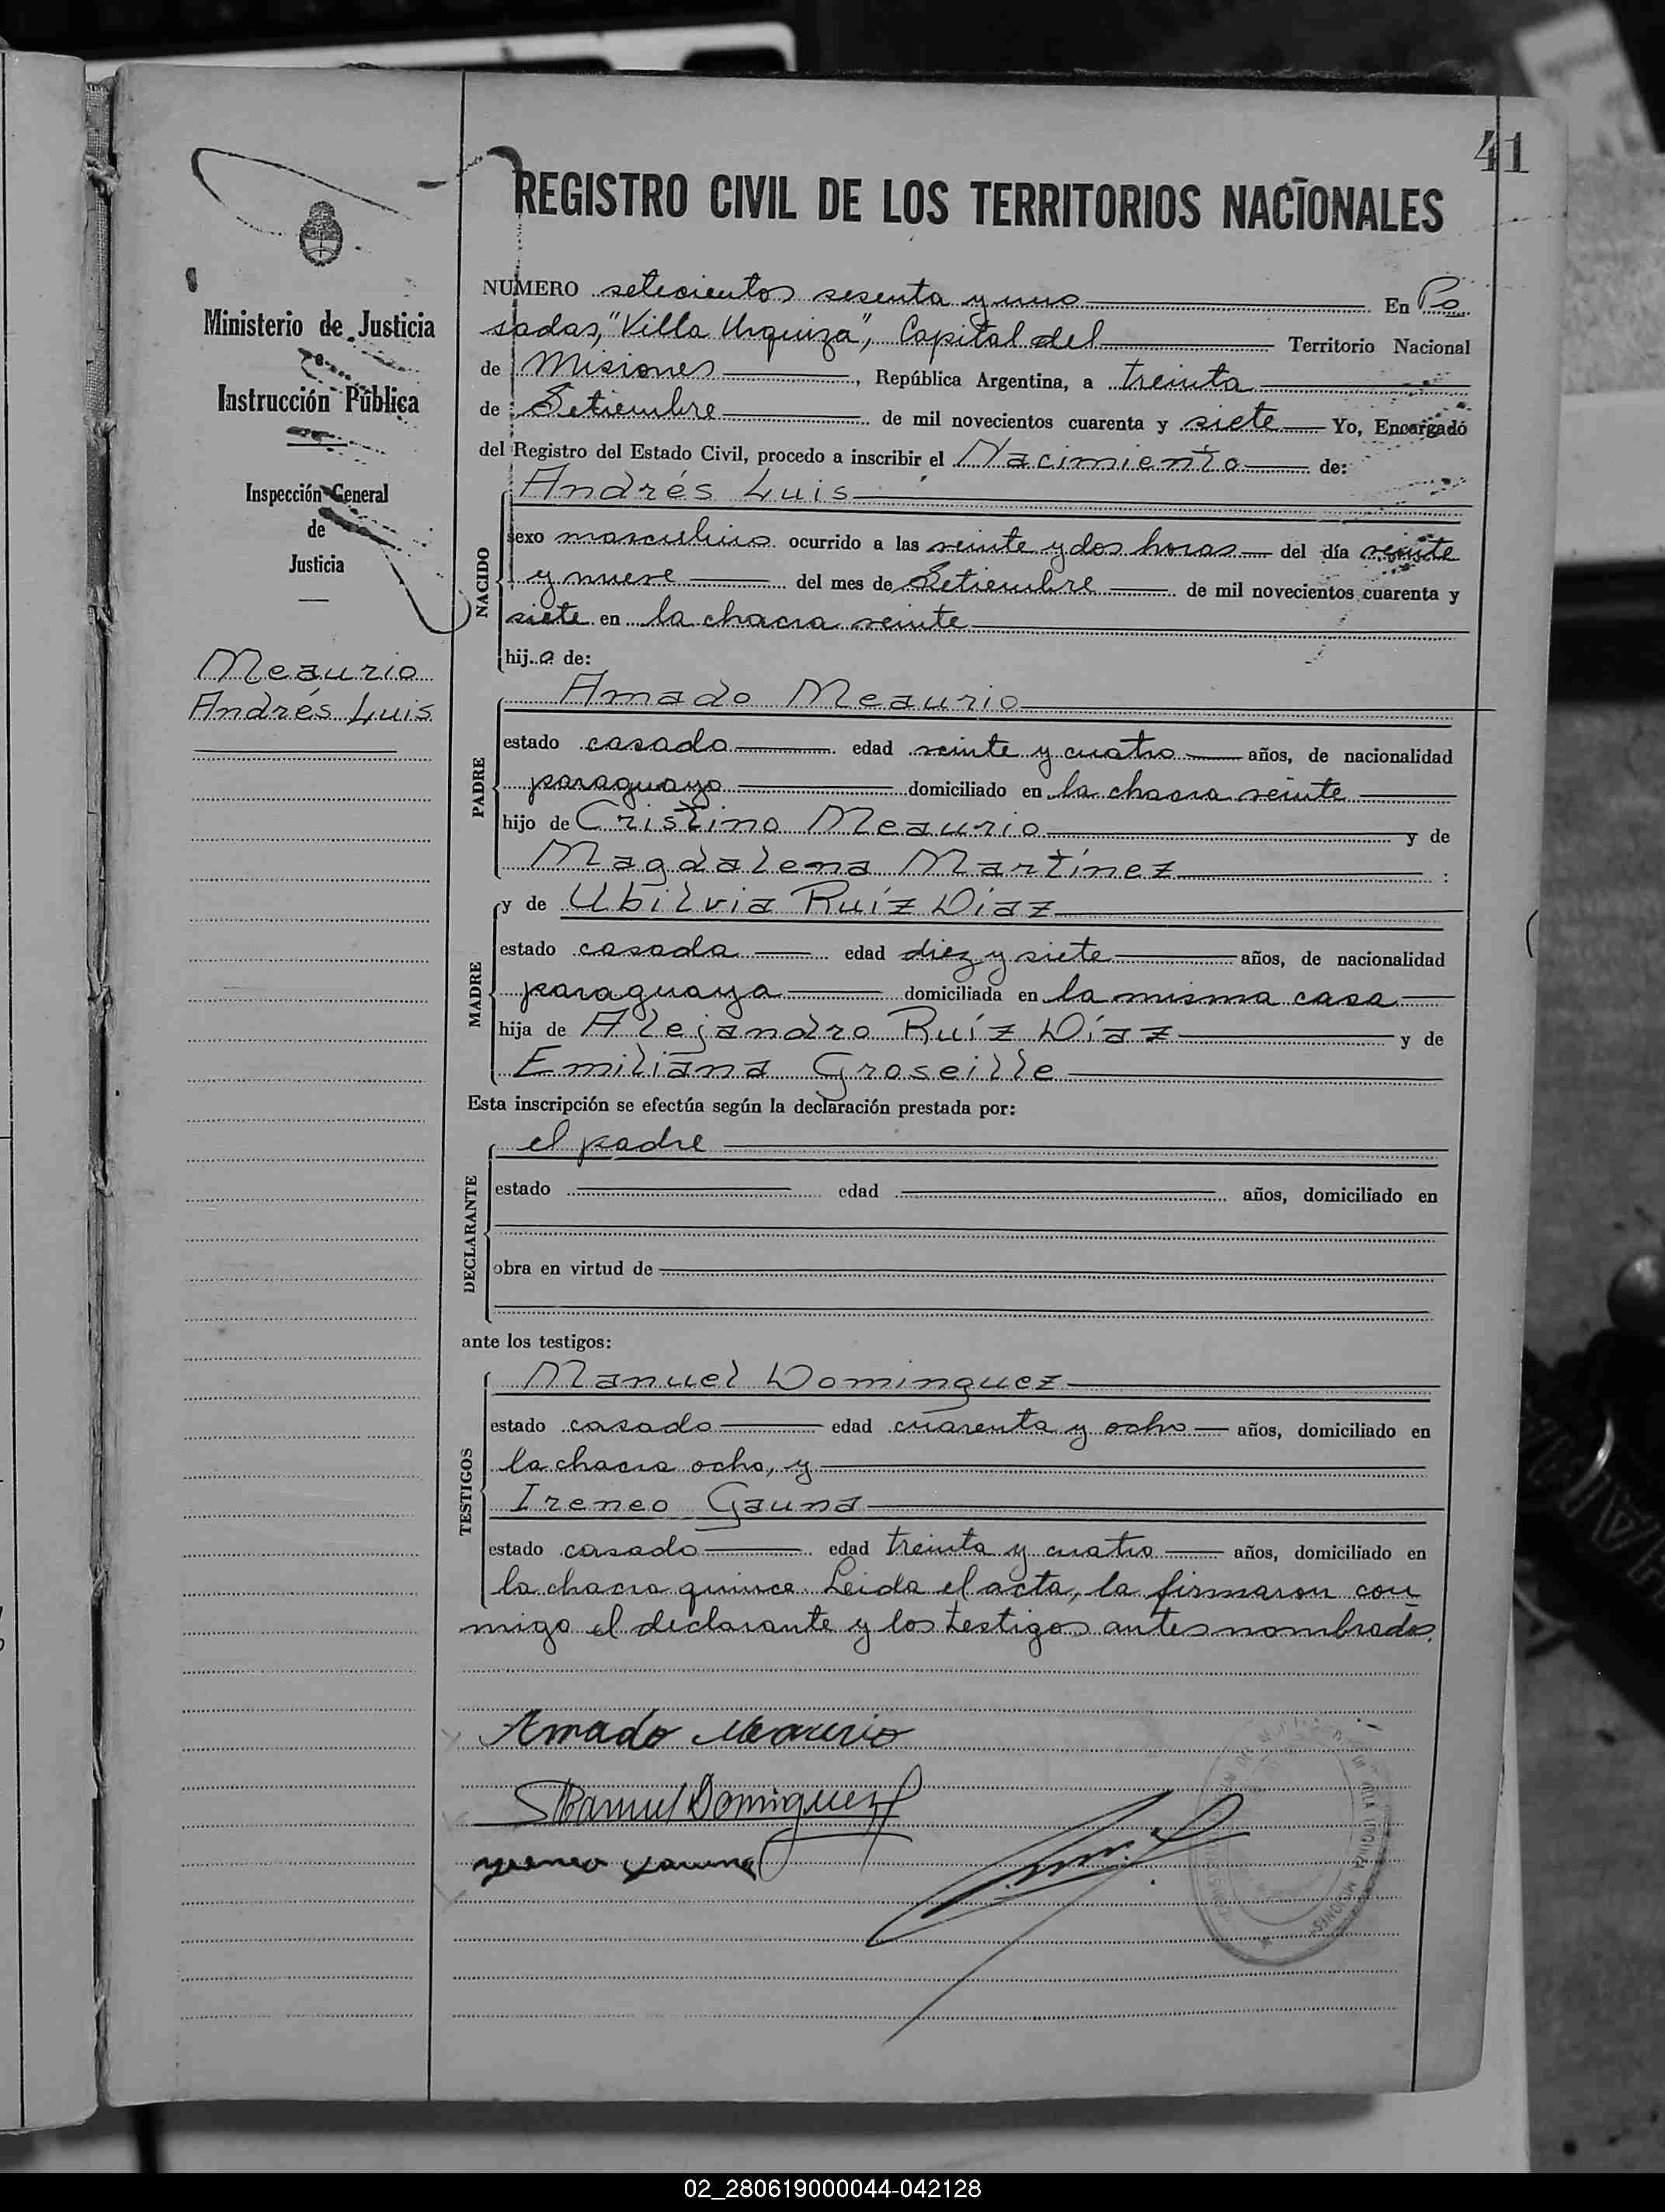 41
REGISTRO CIVIL DE LOS TERRITORIOS NACIONALES
Ministerio de Justicia
e
Instrucción Pública
Inspección General
de
Justicia
Meaurio
Andrés Luis
NUMERO setecientos sesenta y uno En Po
sadas, "Villa Urquiza", Capital del Territorio Nacional
de Misiones, República Argentina, a treinta
de Setiembre de mil novecientos cuarenta y siete Yo, Encargado
del Registro del Estado Civil, procedo a inscribir el Nacimiento de:
NACIDO
Andrés Luis
sexo masculino ocurrido a las veinte y dos horas del día veinte
y nueve del mes de Setiembre de mil novecientos cuarenta y
siete en la chacra veinte
hijo de:
PADRE
Amado Meaurio
estado casado edad veinte y cuatro años, de nacionalidad
paraguayo domiciliado en la chacra veinte
hijo de Cristino Meaurio y de
Magdalena Martínez :
MADRE
y de Ubilvia Ruíz Díaz
estado casada edad diez y siete años, de nacionalidad
paraguaya domiciliada en la misma casa
hija de Alejandro Ruíz Díaz y de
Emiliana Groseille
Esta inscripción se efectúa según la declaración prestada por:
DECLARANTE
el padre
estado edad años, domiciliado en
obra en virtud de
ante los testigos:
TESTIGOS
Manuel Dominguez
estado casado edad cuarenta y ocho años, domiciliado en
la chacra ocho, y
Ireneo Gauna
estado casado edad treinta y cuatro años, domiciliado en
la chacra quince. Leida el acta, la firmaron con
migo el declarante y los testigos antes nombrados.
Amado Meaurio
Manuel Dominguez
Yreneo Gauna
URQUIZA MISIONES
02_280619000044-042128